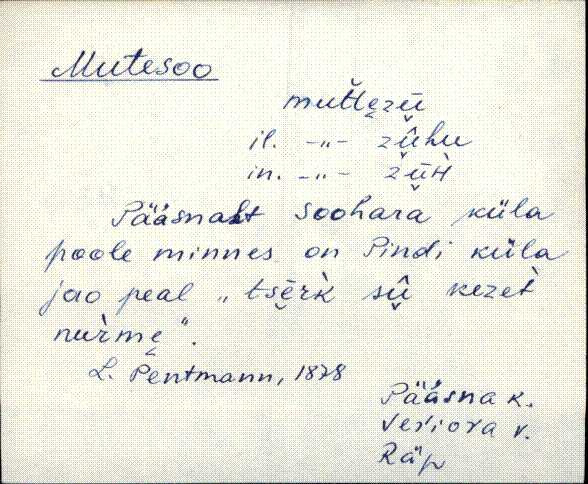 Mutesoo
mut̆t̆ęzū
il. -"- zū̬hu
in. -"- zū̬H̀
Pääsnalt Soohara küla
poole minnes on Pindi küla
jao peal „tsē̬ŕk sū̬ kezet̀
nur̀mę“.
L. Pentmann, 1878
Pääsna k.
Veriora v.
Räp